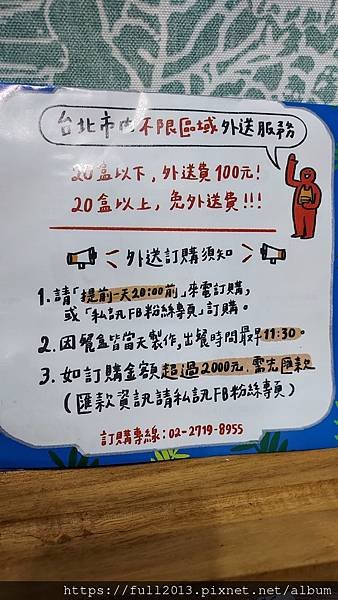 台北市內不限區域外送服務
20盒以下，外送費100元!
20盒以上，免外送費!!!
外送訂購須知
1. 請「提前一天20:00前」來電訂購，
或「私訊FB粉絲專頁」訂購。
2. 因餐盒皆當天製作，出餐時間最早11:30。
3. 如訂購金額超過2000元，需先匯款
(匯款資訊請私訊FB粉絲專頁)
訂購專線：02-2719-8955
https://full2013.pixnet.net/album